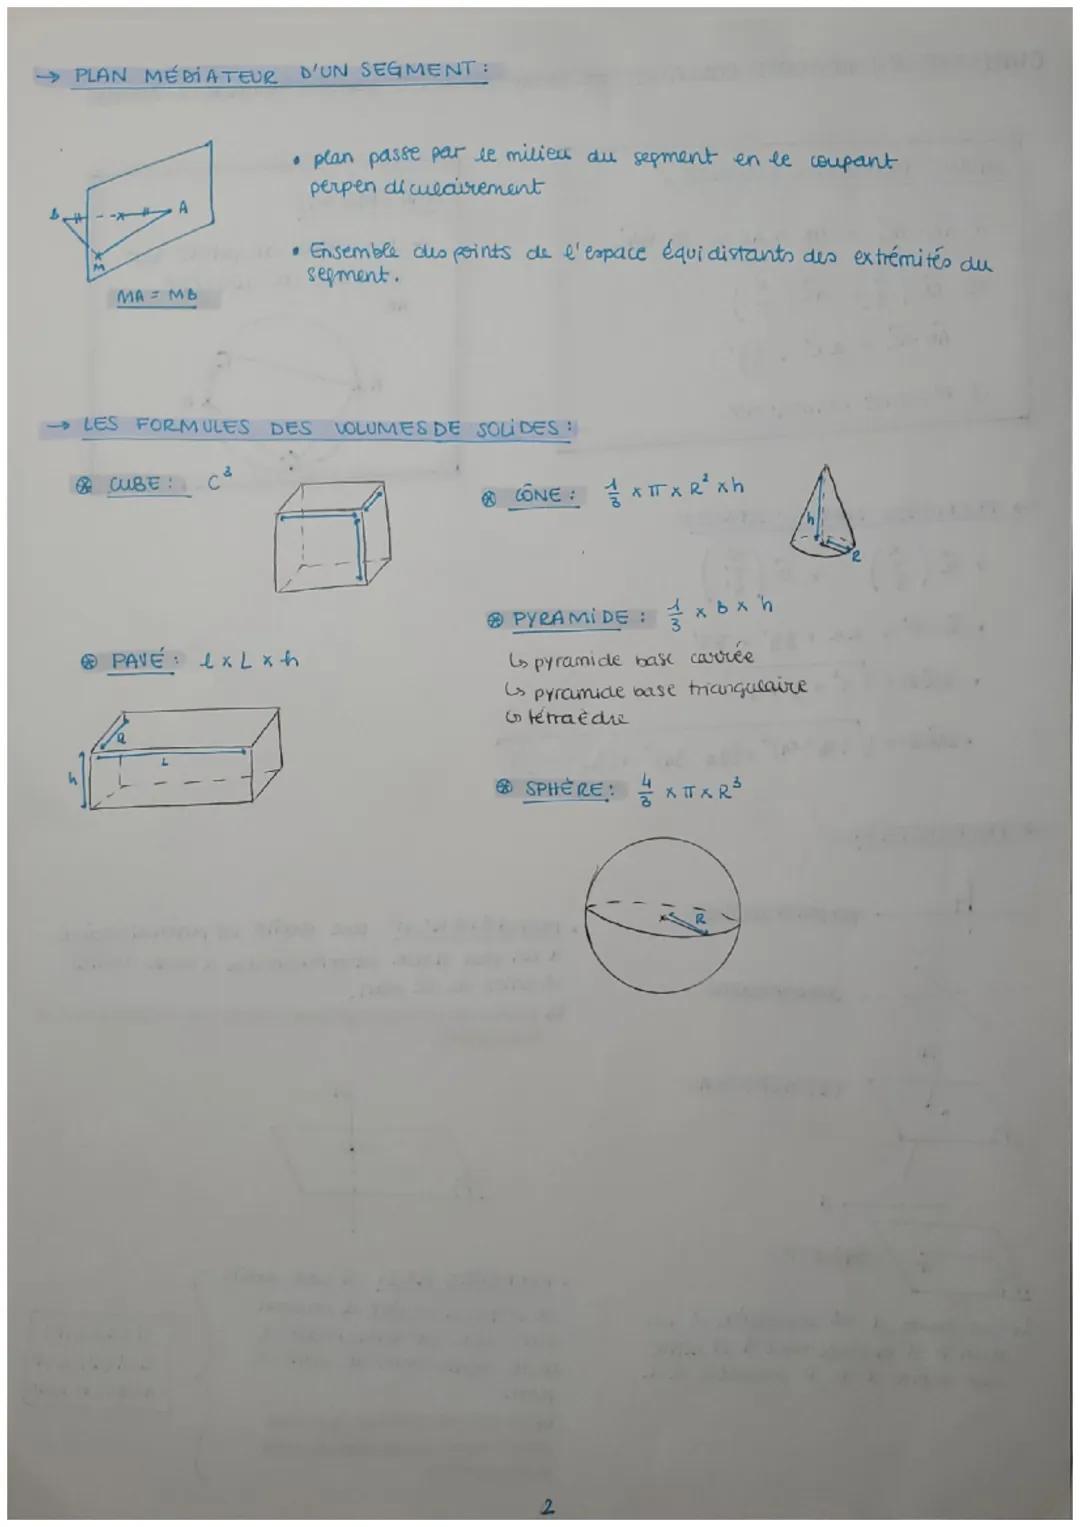 → PLAN MÉDIATEUR D'UN SEGMENT :
• plan passe par le milieu du segment en le coupant
perpendiculairement
B A
M
• Ensemble des points de l'espace équidistants des extrémités du
segment.
MA = MB
→ LES FORMULES DES VOLUMES DE SOLIDES :
⊛ CUBE : C³
⊛ CÔNE : 1/3 × π × R² × h
h
R
⊛ PYRAMIDE : 1/3 × B × h
↳ pyramide base carrée
↳ pyramide base triangulaire
↳ tétraèdre
⊛ PAVÉ : l × L × h
l
L
h
⊛ SPHÈRE : 4/3 × π × R³
R
2